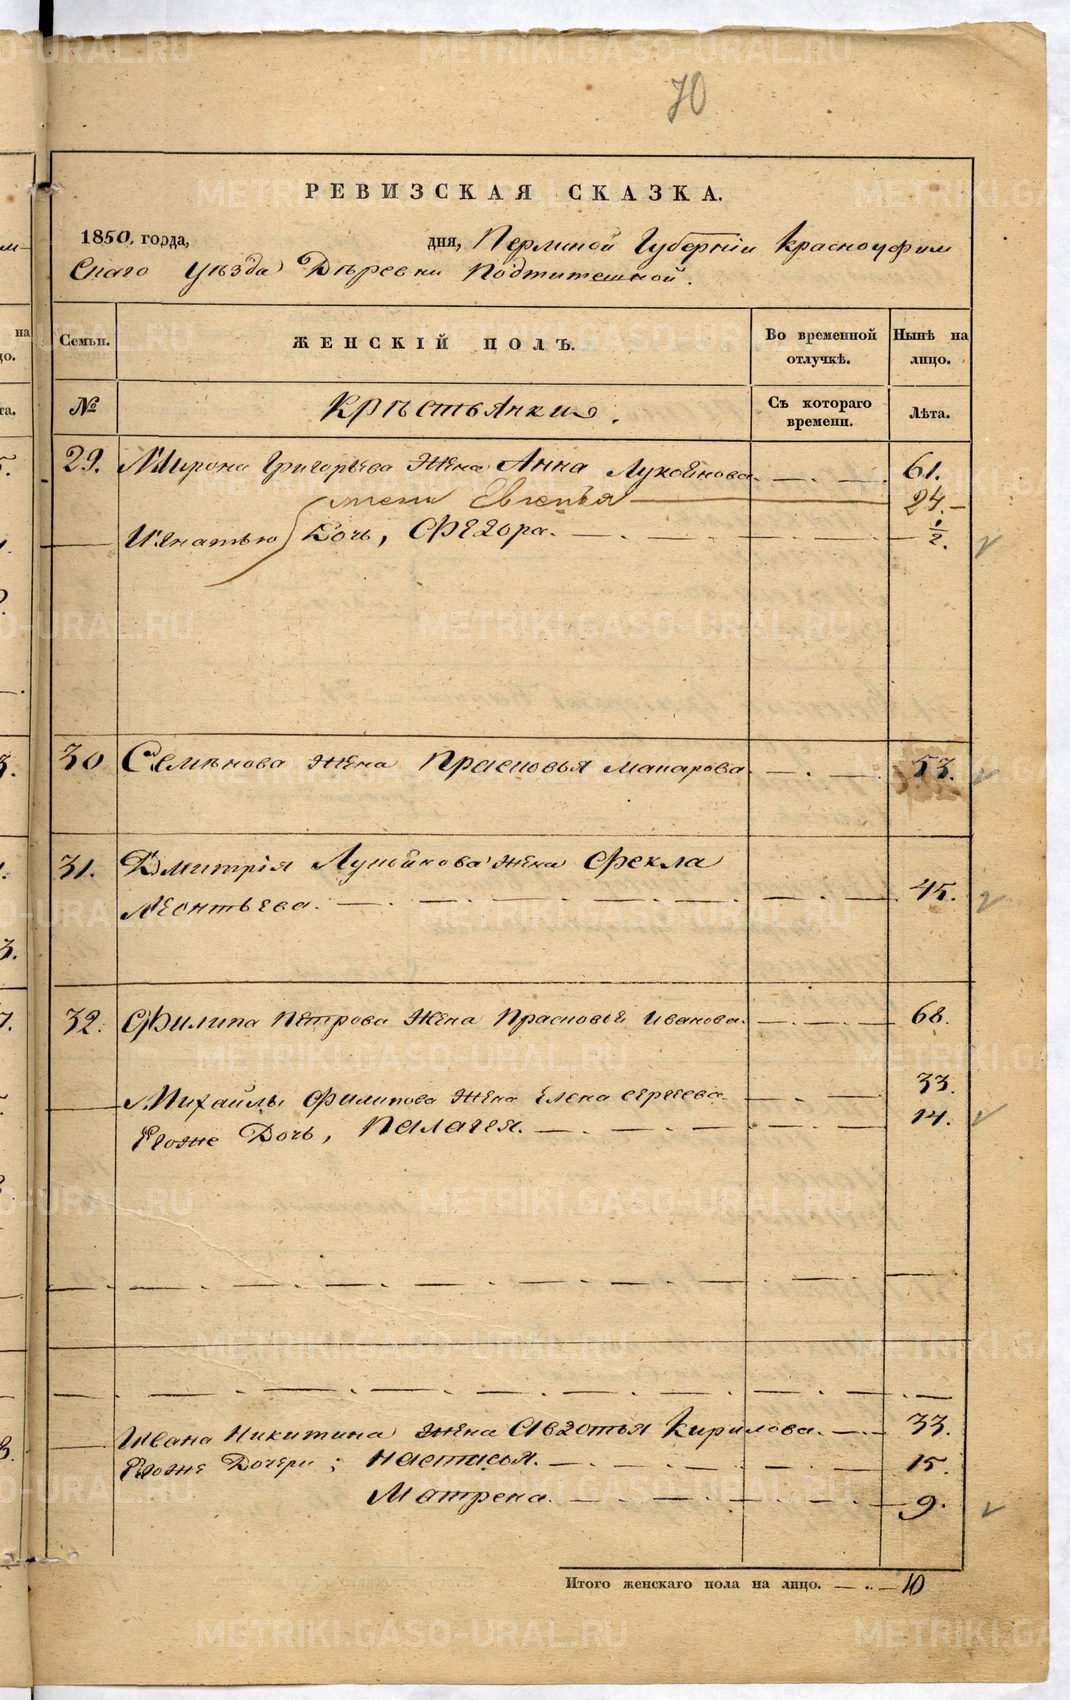 70
РЕВИЗСКАЯ СКАЗКА.
1850. горда, дня, Пермской Губерніи Красноуфим
скаго уѣзда Дѣревни Подтитешной.
Семьи. ЖЕНСКІЙ ПОЛЪ. Во временной отлучкѣ. Нынѣ на лицо.
№ Крѣстьянки. Съ котораго времени. Лѣта.
29. Мирона Григорьева Жена Анна Лукойнова 61.
жена Евгенья 24.
Игнатью Дочь, Федора. 1/2.
30 Семѣнова жена Прасковья Макарова 53.
31. Дмитрія Лукойнова жена Фекла
Леонтьева. 45.
32. Филипа Петрова Жена Прасковья Иванова. 68.
Михайлы Филипова жена Елена Сергеева 33.
Евоже Дочь, Палагея. 14.
Ивана Никитина жена Авдотья Кирилова. 33.
Евоже Дочери; Настасья. 15.
Матрена. 9.
Итого женскаго пола на лицо. 10
METRIKI.GASO-URAL.RU